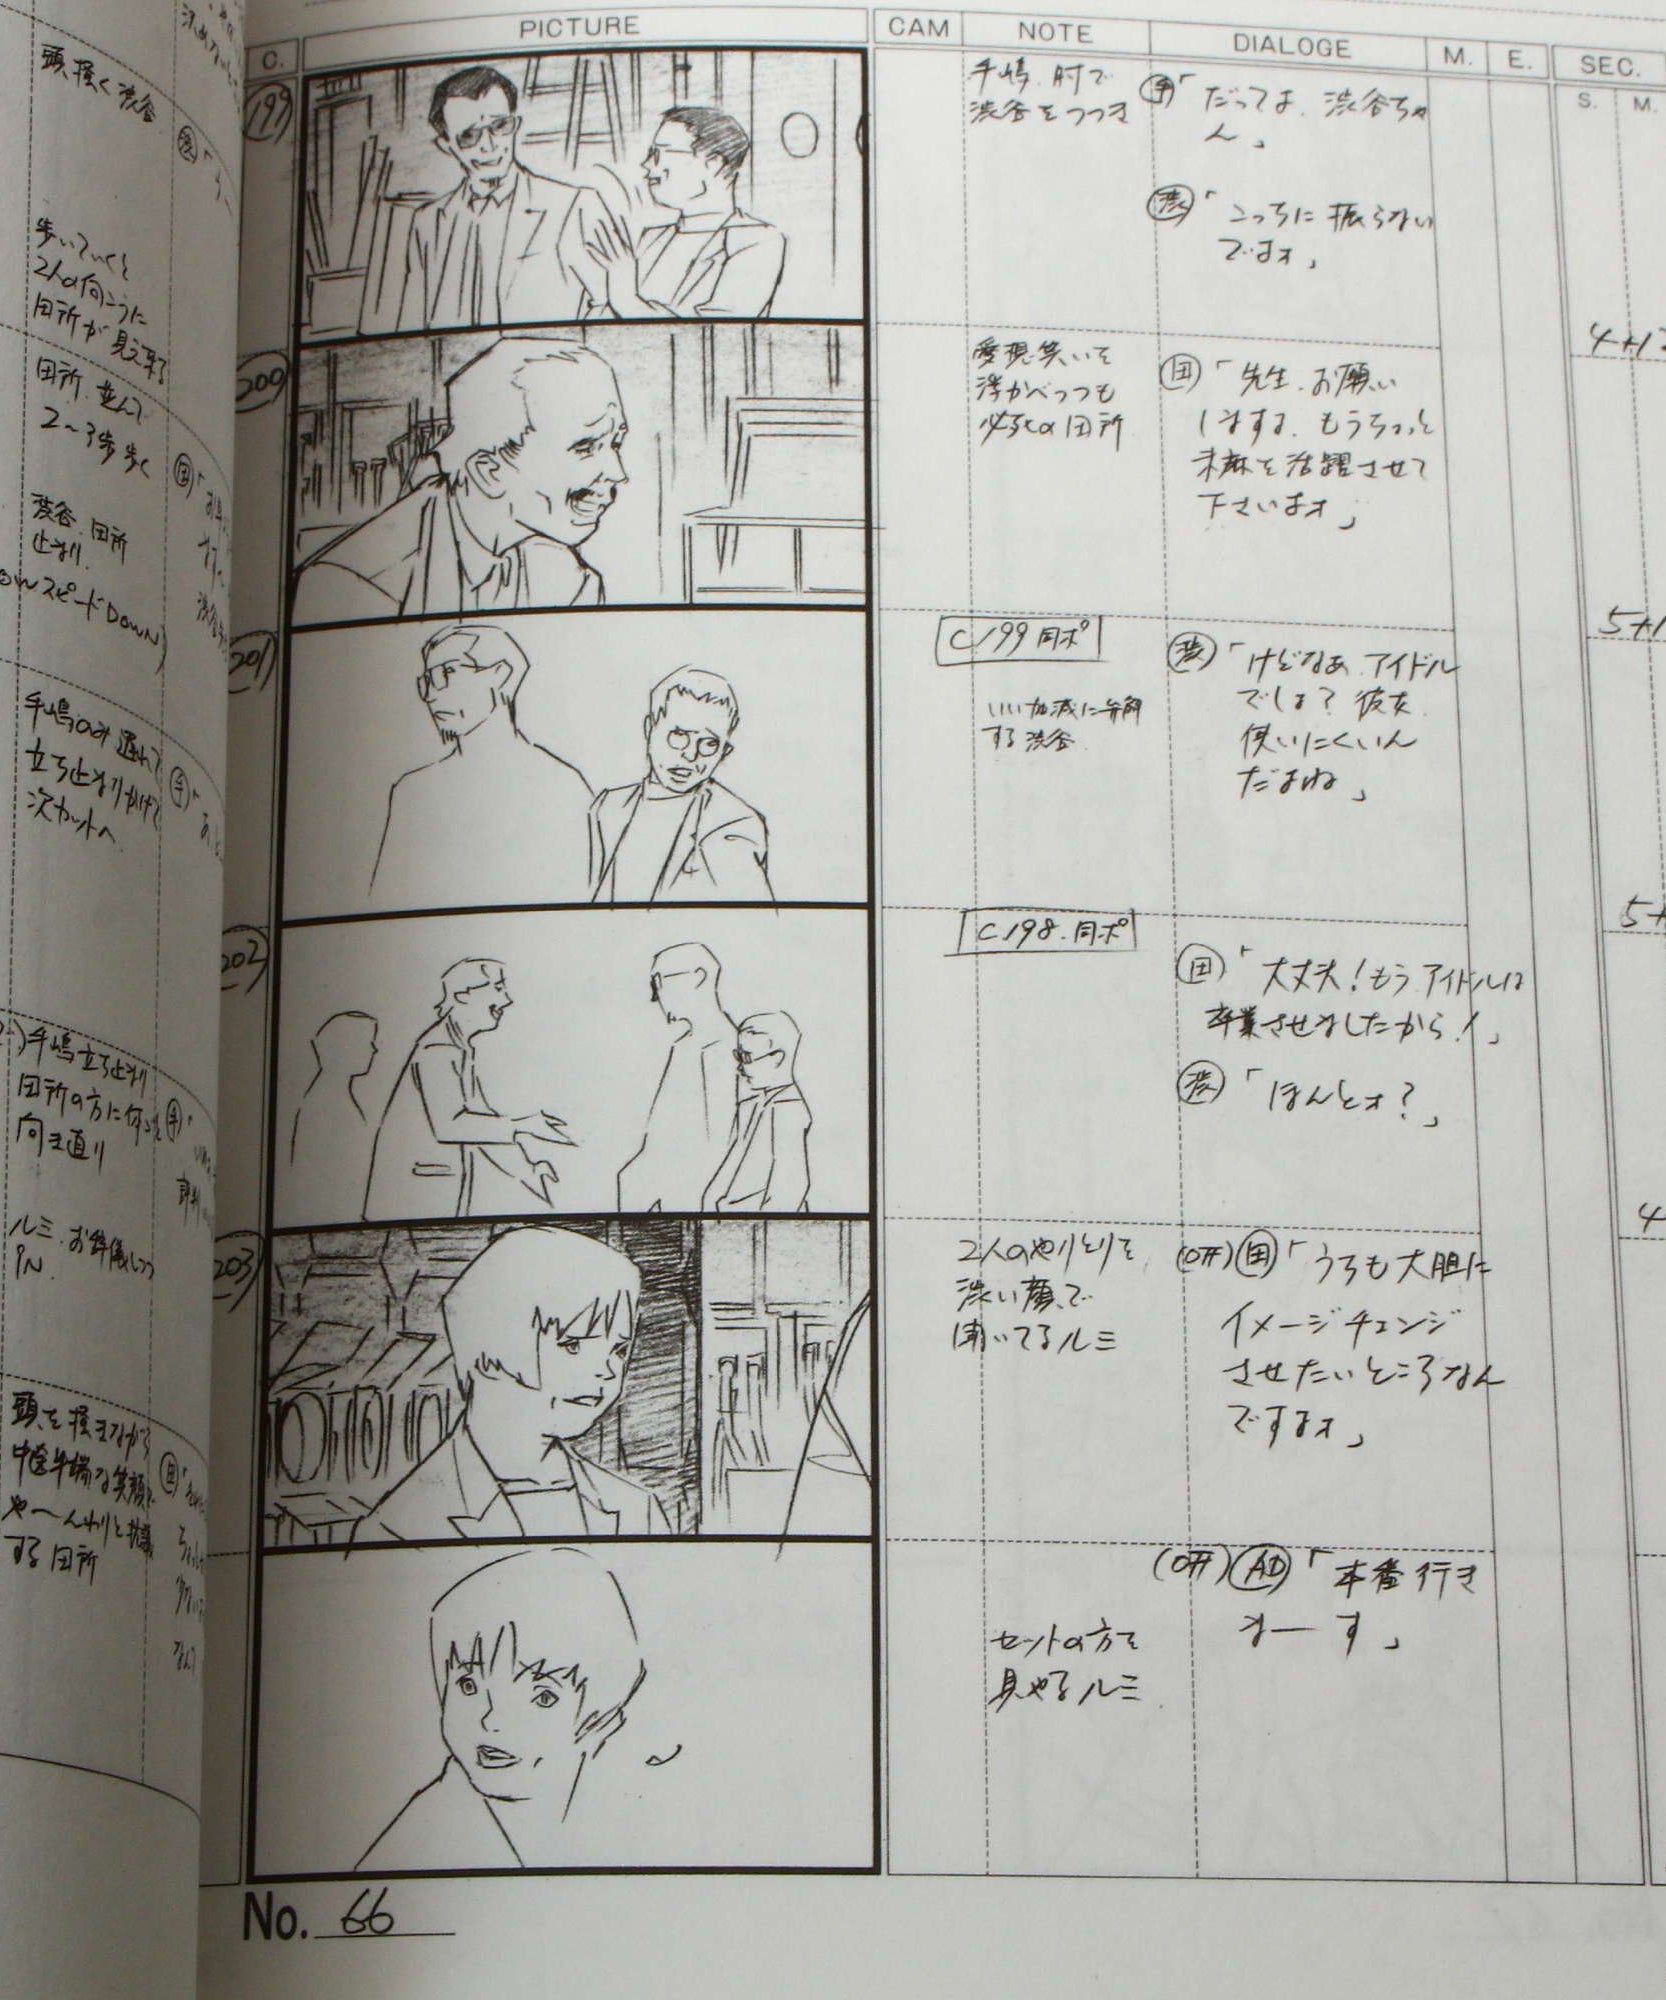 C.
PICTURE
CAM
NOTE
DIALOGE
M.
E.
SEC.
S.
M.
頭、掻く渋谷
渋
歩いていくと
2人の向こうに
田所が見え来る
田所、並んで
2〜3歩歩く
田
渋谷、田所
止まり
スピードDOWN)
手嶋のみ遅れて
立ち止まりかけて
次カットへ
手
手嶋立ち止まり
田所の方に
向き直り
手
ルミ、お辞儀しつつ
IN
頭を掻きながら
中途半端な笑顔で
や〜んわりと抗議
する田所
田
199
手嶋、肘で
渋谷をつつき
手「だってよ、渋谷ちゃ
ん」
渋「こっちに振らない
でよォ」
200
愛想笑いを
浮かべつつも
必死の田所
田「先生、お願い
しますよ、もうちょっと
未麻を活躍させて
下さいよォ」
201
C199同ポ
いい加減に弁解
する渋谷
渋「けどなぁ、アイドル
でしょ?彼女
使いにくいん
だよね」
202
C198.同ポ
田「大丈夫!もうアイドルは
卒業させましたから!」
渋「ほんとォ?」
203
2人のやりとりを
渋い顔で
聞いてるルミ
(Off)田「うちも大胆に
イメージチェンジ
させたいところなん
ですよォ」
(Off)AD「本番行き
まーす」
セットの方を
見やるルミ
No. 66